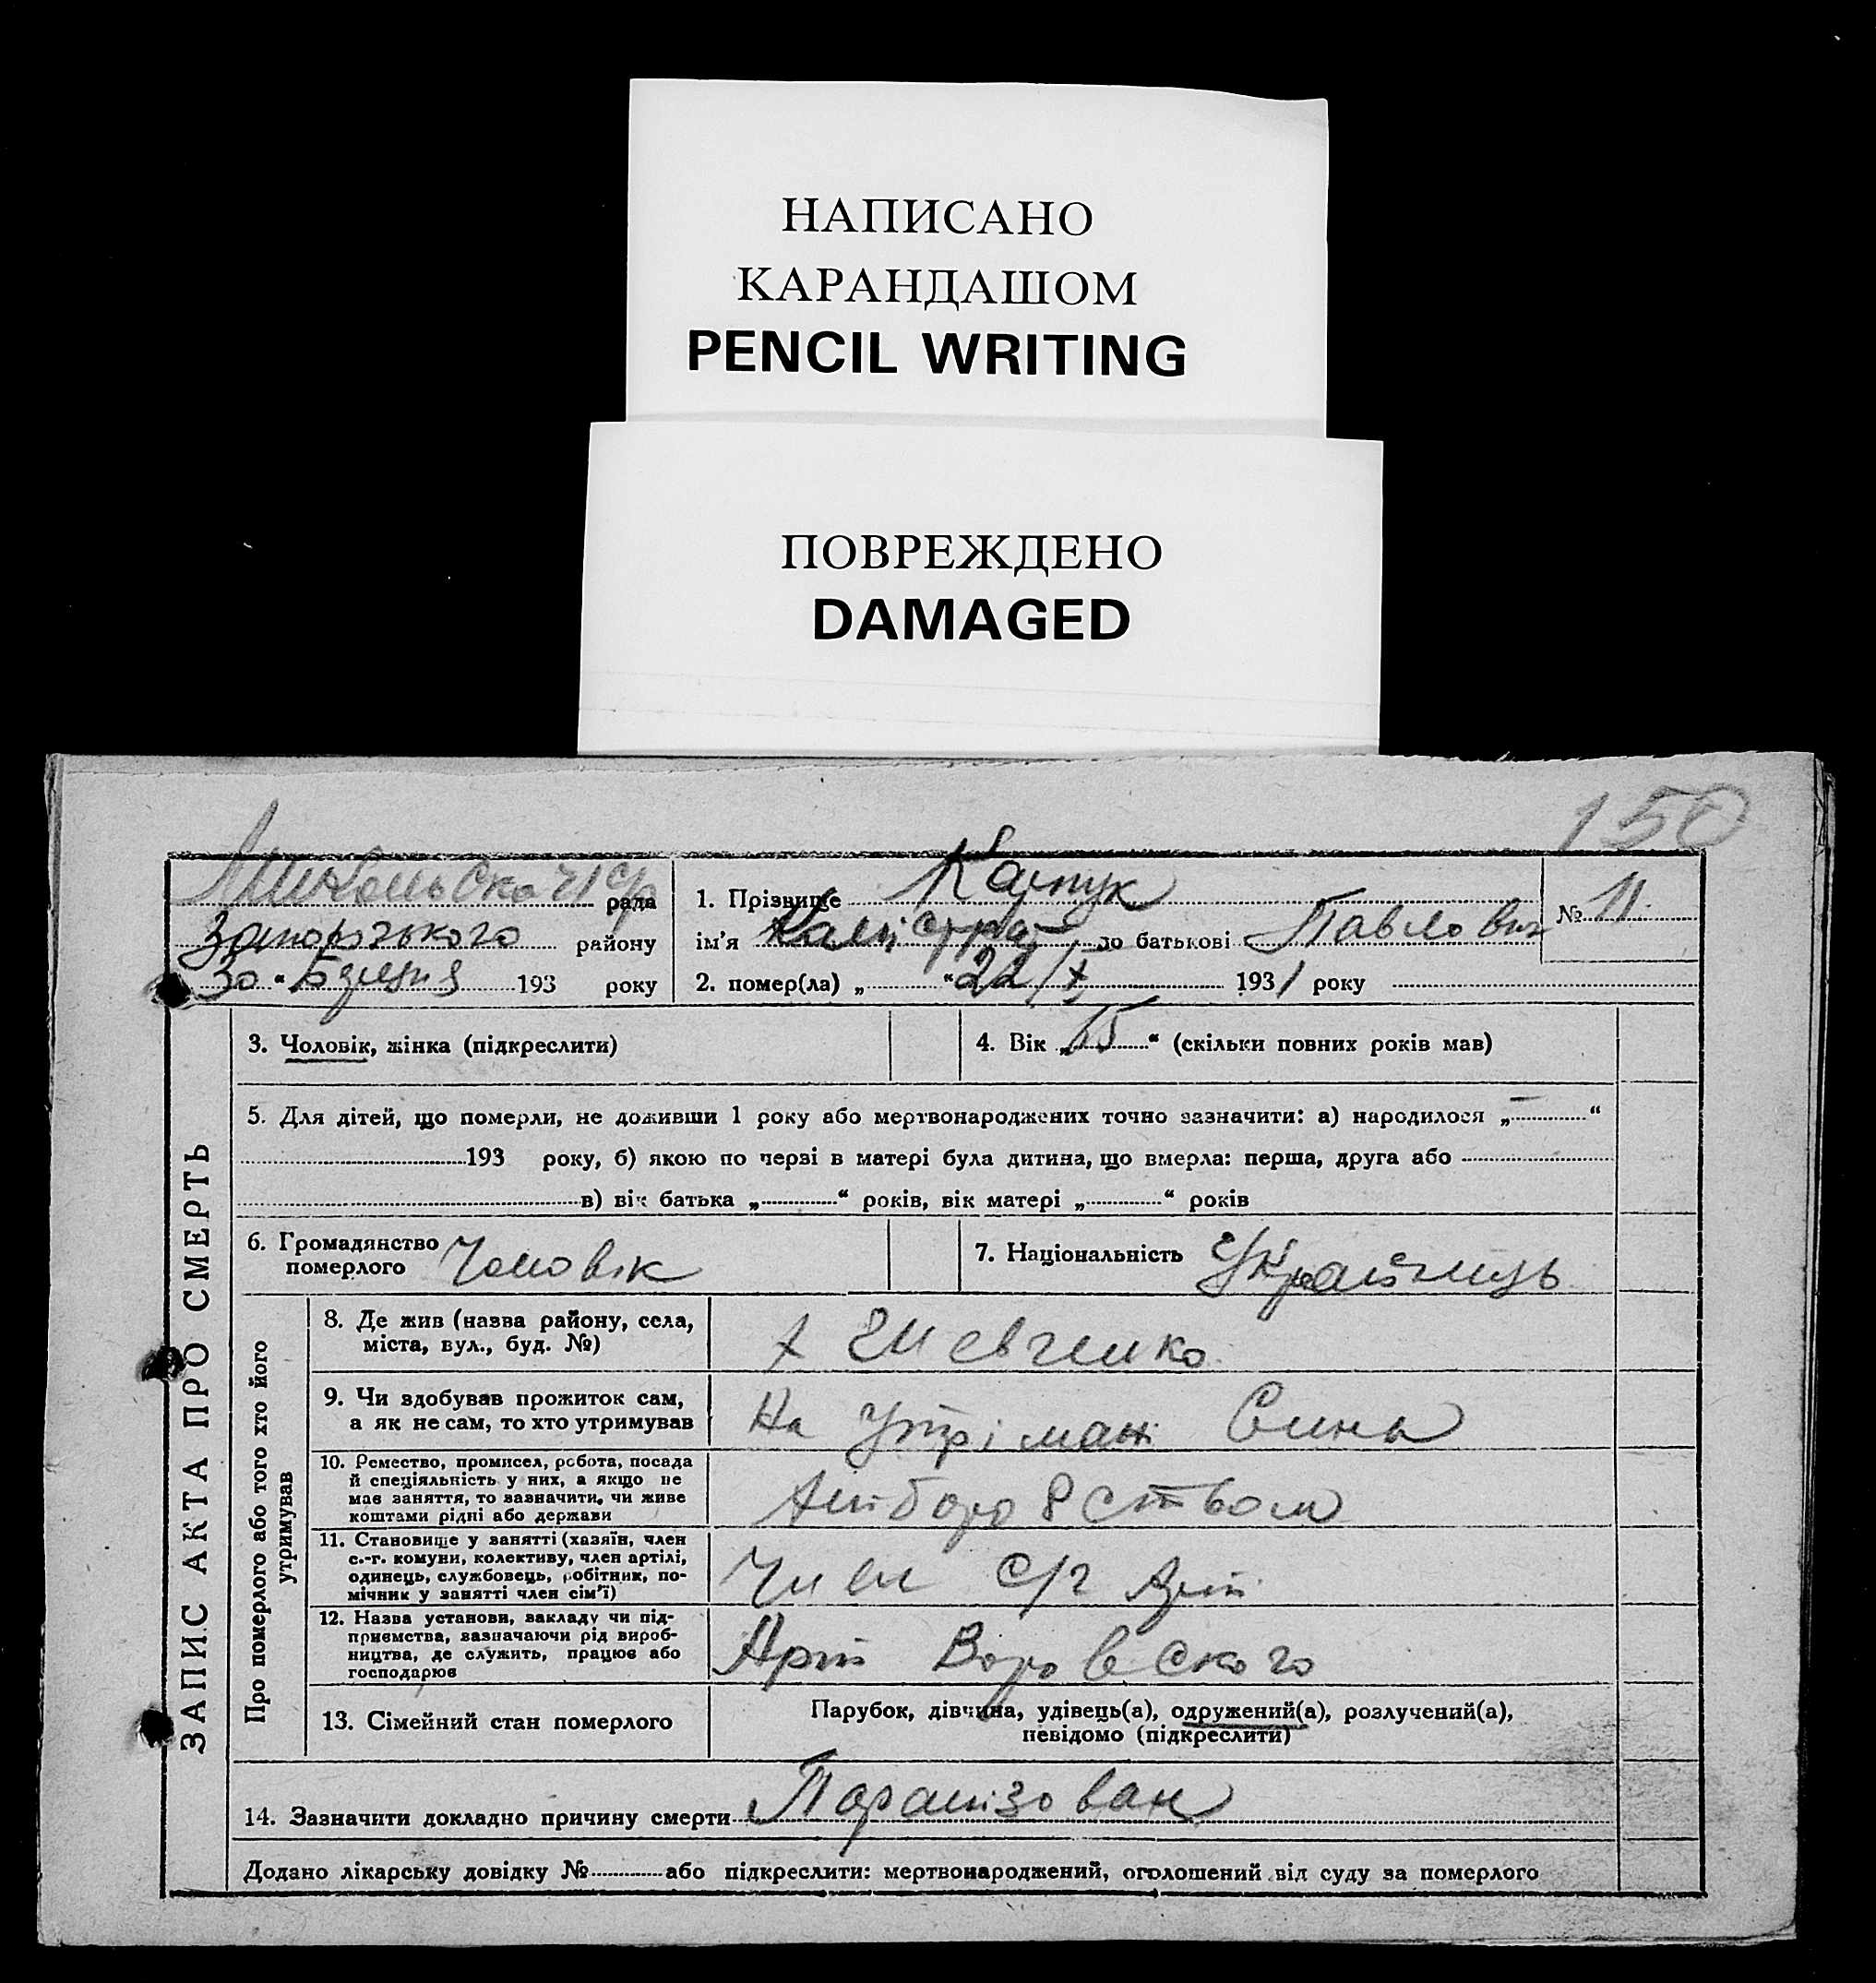 НАПИСАНО
КАРАНДАШОМ
PENCIL WRITING
ПОВРЕЖДЕНО
DAMAGED
150
рада
Запорізького району
30 " Березня 193 року
1. Прізвище Карпук
ім'я Калістрат по батькові Павлович
№ 11
2. помер(ла) „ “ 22/X 1931 року
ЗАПИС АКТА ПРО СМЕРТЬ
3. Чоловік, жінка (підкреслити)
4. Вік „65“ (скільки повних років мав)
5. Для дітей, що померли, не доживши 1 року або мертвонароджених точно зазначити: а) народилося „ — “
193 року, б) якою по черзі в матері була дитина, що вмерла: перша, друга або
в) вік батька „ “ років, вік матері „ “ років
6. Громадянство
померлого Чоловік
7. Національність Українець
Про померлого або того хто його
утримував
8. Де жив (назва району, села,
міста, вул., буд. №)
х Шевченко
9. Чи здобував прожиток сам,
а як не сам, то хто утримував
На утрімані Сина
10. Ремество, промисел, робота, посада
й спеціяльність у них, а якщо не
має заняття, то зазначити, чи живе
коштами рідні або держави
Хліборобством
11. Становище у занятті (хазяїн, член
с.-г. комуни, колективу, член артілі,
одинець, службовець, робітник, по-
мічник у занятті член сім'ї)
Член с/г Арт
12. Назва установи, закладу чи під-
приємства, зазначаючи рід вироб-
ництва, де служить, працює або
господарює
Арт Воровского
13. Сімейний стан померлого
Парубок, дівчина, удівець(а), одружений(а), розлучений(а),
невідомо (підкреслити)
14. Зазначити докладно причину смерти Паралізован
Додано лікарську довідку № або підкреслити: мертвонароджений, оголошений від суду за померлого